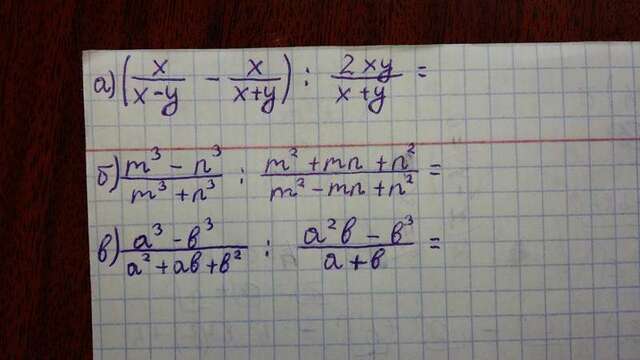 а) (x/(x-y) - x/(x+y)) : 2xy/(x+y) =
б) (m³ - n³)/(m³ + n³) : (m² + mn + n²)/(m² - mn + n²) =
в) (a³ - b³)/(a² + ab + b²) : (a²b - b³)/(a + b) =